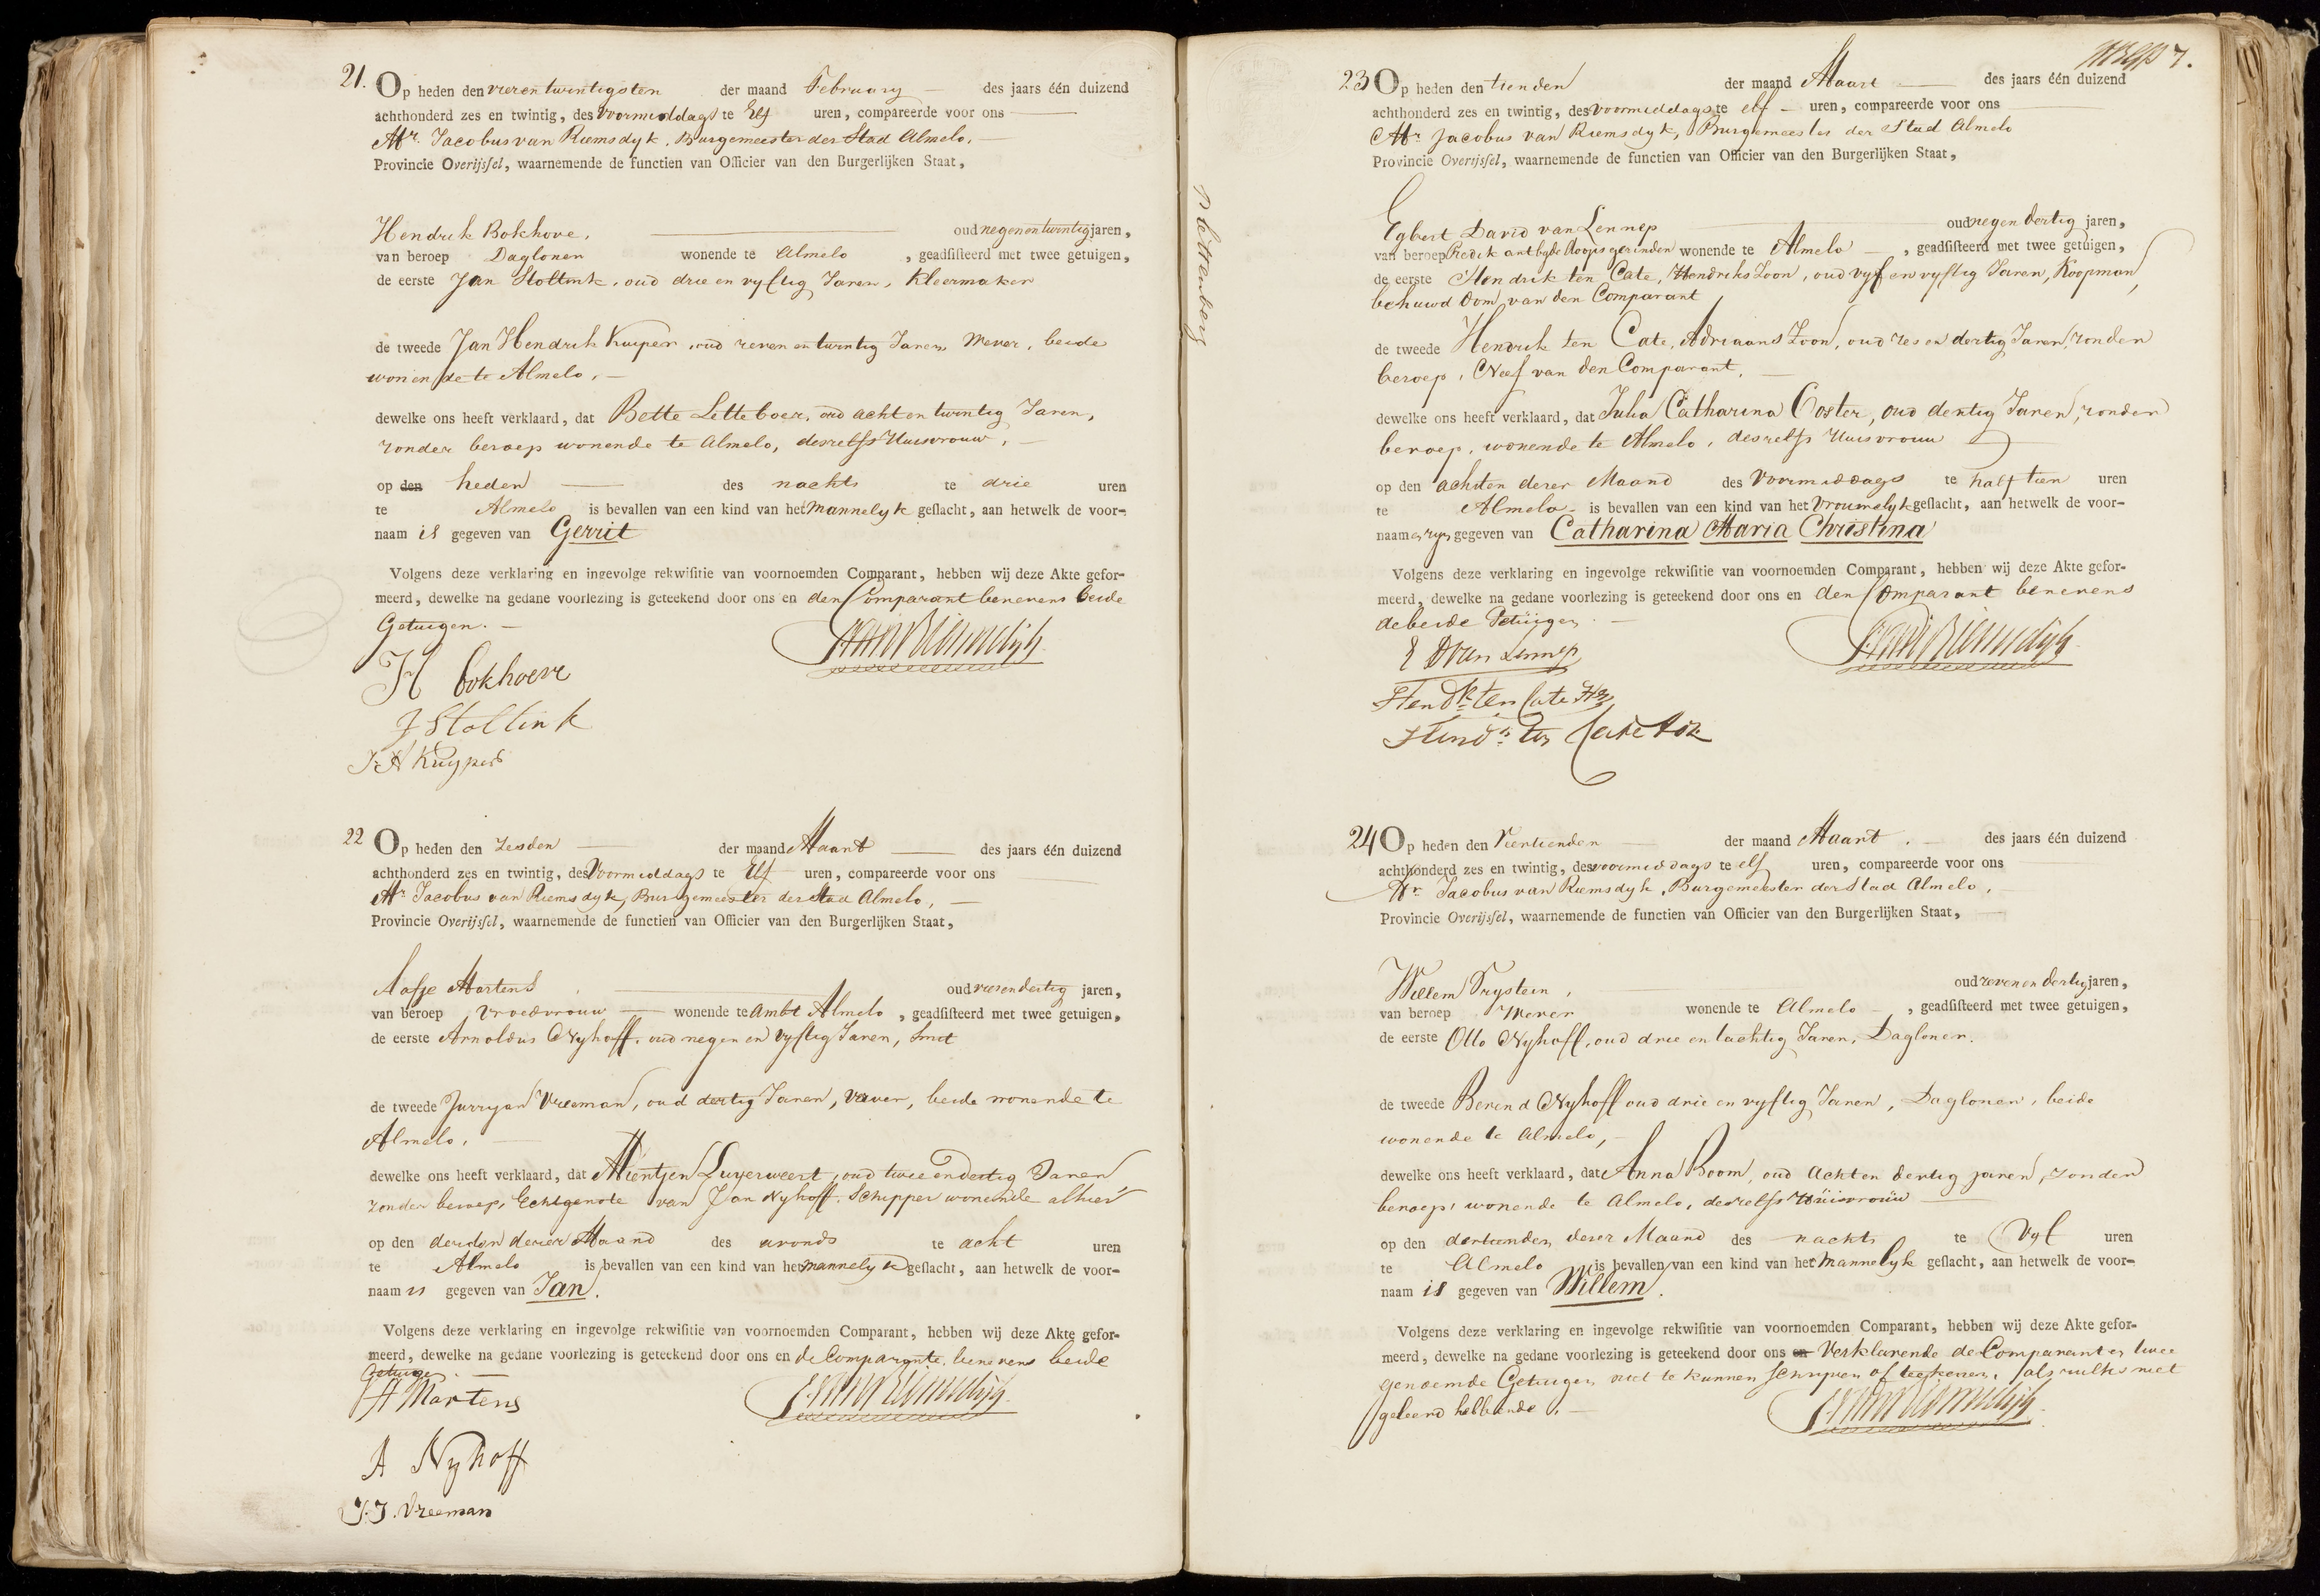 21. Op heden den vier en twintigsten der maand February des jaars één duizend
achthonderd zes en twintig, des Voormiddags te Elf uren, compareerde voor ons
Mr. Jacobus van Riemsdyk, Burgemeester der Stad Almelo,
Provincie Overijssel, waarnemende de functien van Officier van den Burgerlijken Staat,
Hendrik Bokhove, oud negenentwintig jaren,
van beroep Dagloner wonende te Almelo, geadsisteerd met twee getuigen,
de eerste Jan Stottink, oud drie en vyftig Jaren, Kleermaker
de tweede Jan Hendrik Kuiper, oud zeven en twintig Jaren Wever, beide
wonende te Almelo,
dewelke ons heeft verklaard, dat Bette Letteboer, oud acht en twintig Jaren,
zonder beroep wonende te Almelo, deszelfs Huisvrouw,
op den heden des nachts te drie uren
te Almelo is bevallen van een kind van het Mannelyk geslacht, aan hetwelk de voor-
naam is gegeven van Gerrit
Volgens deze verklaring en ingevolge rekwisitie van voornoemden Comparant, hebben wij deze Akte gefor-
meerd, dewelke na gedane voorlezing is geteekend door ons en den Comparant benevens beide
Getuigen.
H bokhove
J Stottink
J.H Kuypers
22 Op heden den Zesden der maand Maart des jaars één duizend
achthonderd zes en twintig, des Voormiddags te Elf uren, compareerde voor ons
Mr. Jacobus van Riemsdyk, Burgemeester der Stad Almelo,
Provincie Overijssel, waarnemende de functien van Officier van den Burgerlijken Staat,
Aafje Martens oud vierendertig jaren,
van beroep Vroedvrouw wonende te Ambt Almelo, geadsisteerd met twee getuigen,
de eerste Arnoldus Nyhoff, oud negen en vyftig Jaren, Smit
de tweede Jurryan Vreeman, oud dertig Jaren, Wever, beide wonende te
Almelo,
dewelke ons heeft verklaard, dat Mientjen Luyerweert, oud twee en dertig Jaren
zonder beroep, Echtgenote van Jan Nyhoff, Schipper wonende alhier
op den derden dezer Maand des avonds te acht uren
te Almelo is bevallen van een kind van het mannelyk geslacht, aan hetwelk de voor-
naam is gegeven van Jan.
Volgens deze verklaring en ingevolge rekwisitie van voornoemden Comparant, hebben wij deze Akte gefor-
meerd, dewelke na gedane voorlezing is geteekend door ons en de Comparante, benevens beide
Getuige.
A Martens
A Nyhoff
J.J. Vreeman
Plettenborg
7.
23 Op heden den tienden der maand Maart des jaars één duizend
achthonderd zes en twintig, des Voormiddags te elf uren, compareerde voor ons
Mr Jacobus van Riemsdyk, Burgemeester der Stad Almelo
Provincie Overijssel, waarnemende de functien van Officier van den Burgerlijken Staat,
Egbert David van Lennep oud negen dertig jaren,
van beroep Predikant by de doopsgezinden wonende te Almelo, geadsisteerd met twee getuigen,
de eerste Hendrik ten Cate, Hendriks Zoon, oud vyf en vyftig Jaren, Koopman,
behuwd Oom van den Comparant
de tweede Hendrik ten Cate, Adriaans Zoon, oud zes en dertig Jaren, zonder
beroep, Neef van den Comparant,
dewelke ons heeft verklaard, dat Julia Catharina Coster, oud dertig Jaren, zonder
beroep, wonende te Almelo, deszelfs Huisvrouw
op den achsten dezer Maand des Voormiddags te half tien uren
te Almelo is bevallen van een kind van het Vrouwelyk geslacht, aan hetwelk de voor-
namen zyn gegeven van Catharina Maria Christina
Volgens deze verklaring en ingevolge rekwisitie van voornoemden Comparant, hebben wij deze Akte gefor-
meerd, dewelke na gedane voorlezing is geteekend door ons en den Comparant benevens
de beide Getuigen.
E D van Lennep
Hendk ten Cate Hz
Hendk ten Cate Az
24 Op heden den Veertienden der maand Maart. des jaars één duizend
achthonderd zes en twintig, des voormiddags te elf uren, compareerde voor ons
Mr. Jacobus van Riemsdyk, Burgemeester der Stad Almelo,
Provincie Overijssel, waarnemende de functien van Officier van den Burgerlijken Staat,
Willem Frystein, oud zeven en dertig jaren,
van beroep Wever wonende te Almelo, geadsisteerd met twee getuigen,
de eerste Otto Nyhoff, oud drie en tachtig Jaren, Dagloner.
de tweede Berend Nyhoff oud drie en vyftig Jaren, Dagloner, beide
wonende te Almelo,
dewelke ons heeft verklaard, dat Anna Boom, oud Acht en dertig jaren, zonder
beroep, wonende te Almelo, deszelfs Huisvrouw
op den dertienden dezer Maand des nachts te Vyf uren
te Almelo is bevallen van een kind van het Mannelyk geslacht, aan hetwelk de voor-
naam is gegeven van Willem.
Volgens deze verklaring en ingevolge rekwisitie van voornoemden Comparant, hebben wij deze Akte gefor-
meerd, dewelke na gedane voorlezing is geteekend door ons en Verklarende de Comparant en twee
genoemde Getuigen niet te kunnen schryven of teekenen, als zulks niet
geleerd hebbende,